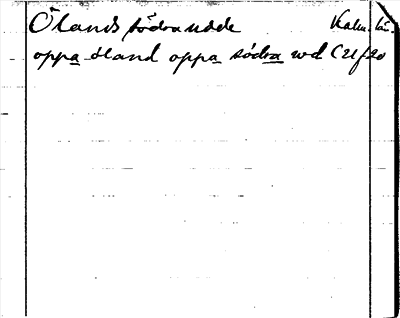 Ölands södra udde Kalm. län.
oppa öland oppa södra wd (Uf 20